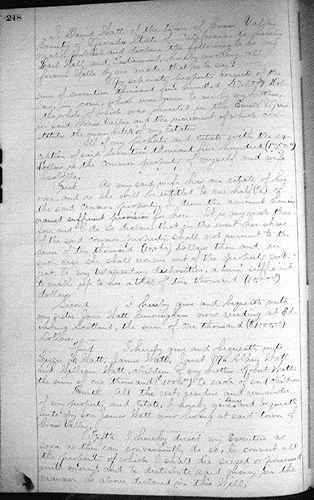 248
I David Watt of the town of Grass Valley
County of Nevada State of California do hereby
make publish and declare the following to be my
Last Will and Testament, hereby revoking all
former Wills by me made, that is to say:
My separate property consist of the
sum of seventeen thousand five hundred Dol-
lars in coin which was given to me by my
the whole of which was invested in the
in said Grass Valley and the increment of which con-
stitute the main bulk of my Estate.
All of my property and estate with the ex-
ception of said seventeen thousand five hundred
Dollars is the common property of myself and wife
Isabella,
First As my said wife has an estate of her
own, and as she will be entitled to one half (½) of
the said common property, I deem the amount herein
named sufficient provision for her. It is my wish there-
fore and I do so declare that in the event her share
of the said common property shall not amount to the
sum of ten thousand dollars then and in
such case she shall receive out of the property sub-
ject to my testamentary disposition, a sum sufficient
to make up to her a total of ten thousand
dollars,
Second I hereby give and bequeath unto
my sister Jane Watt Cunningham now residing at Ed-
inburg Scotland, the sum of one thousand
Dollars.
Third I hereby give and bequeath unto
Watt, James Watt, Janet Watt
and William Watt, children of my brother Robert Watt
the sum of one thousand to each of said children
Fourth All the rest residue and remainder
of my property and estate, I hereby give and bequeath
unto my son James Watt now living at said town of
Grass Valley.
Fifth I hereby direct my Executors as
soon as they can conveniently do so, to convert all
the property of which I shall die seized or possessed
into money, and to distribute said money in the
manner as above declared in this Will,